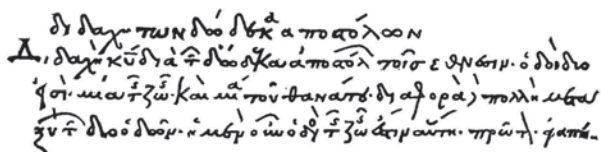 διδαχὴ τῶν δώδεκα ἀποστόλων
Διδαχὴ κ̅υ̅ διὰ τῶν δώδεκα ἀποστόλ τοῖς ἔθνεσιν· ὁδοὶ δύο
εἰσί· μία τῆς ζωῆς· καὶ μία τοῦ θανάτου· διαφορὰ πολλὴ μετα
ξὺ τῶν δύο ὁδῶν· ἡ μὲν οὖν ὁδὸς τῆς ζωῆς ἐστιν αὕτη· πρῶτ· ἀγαπή